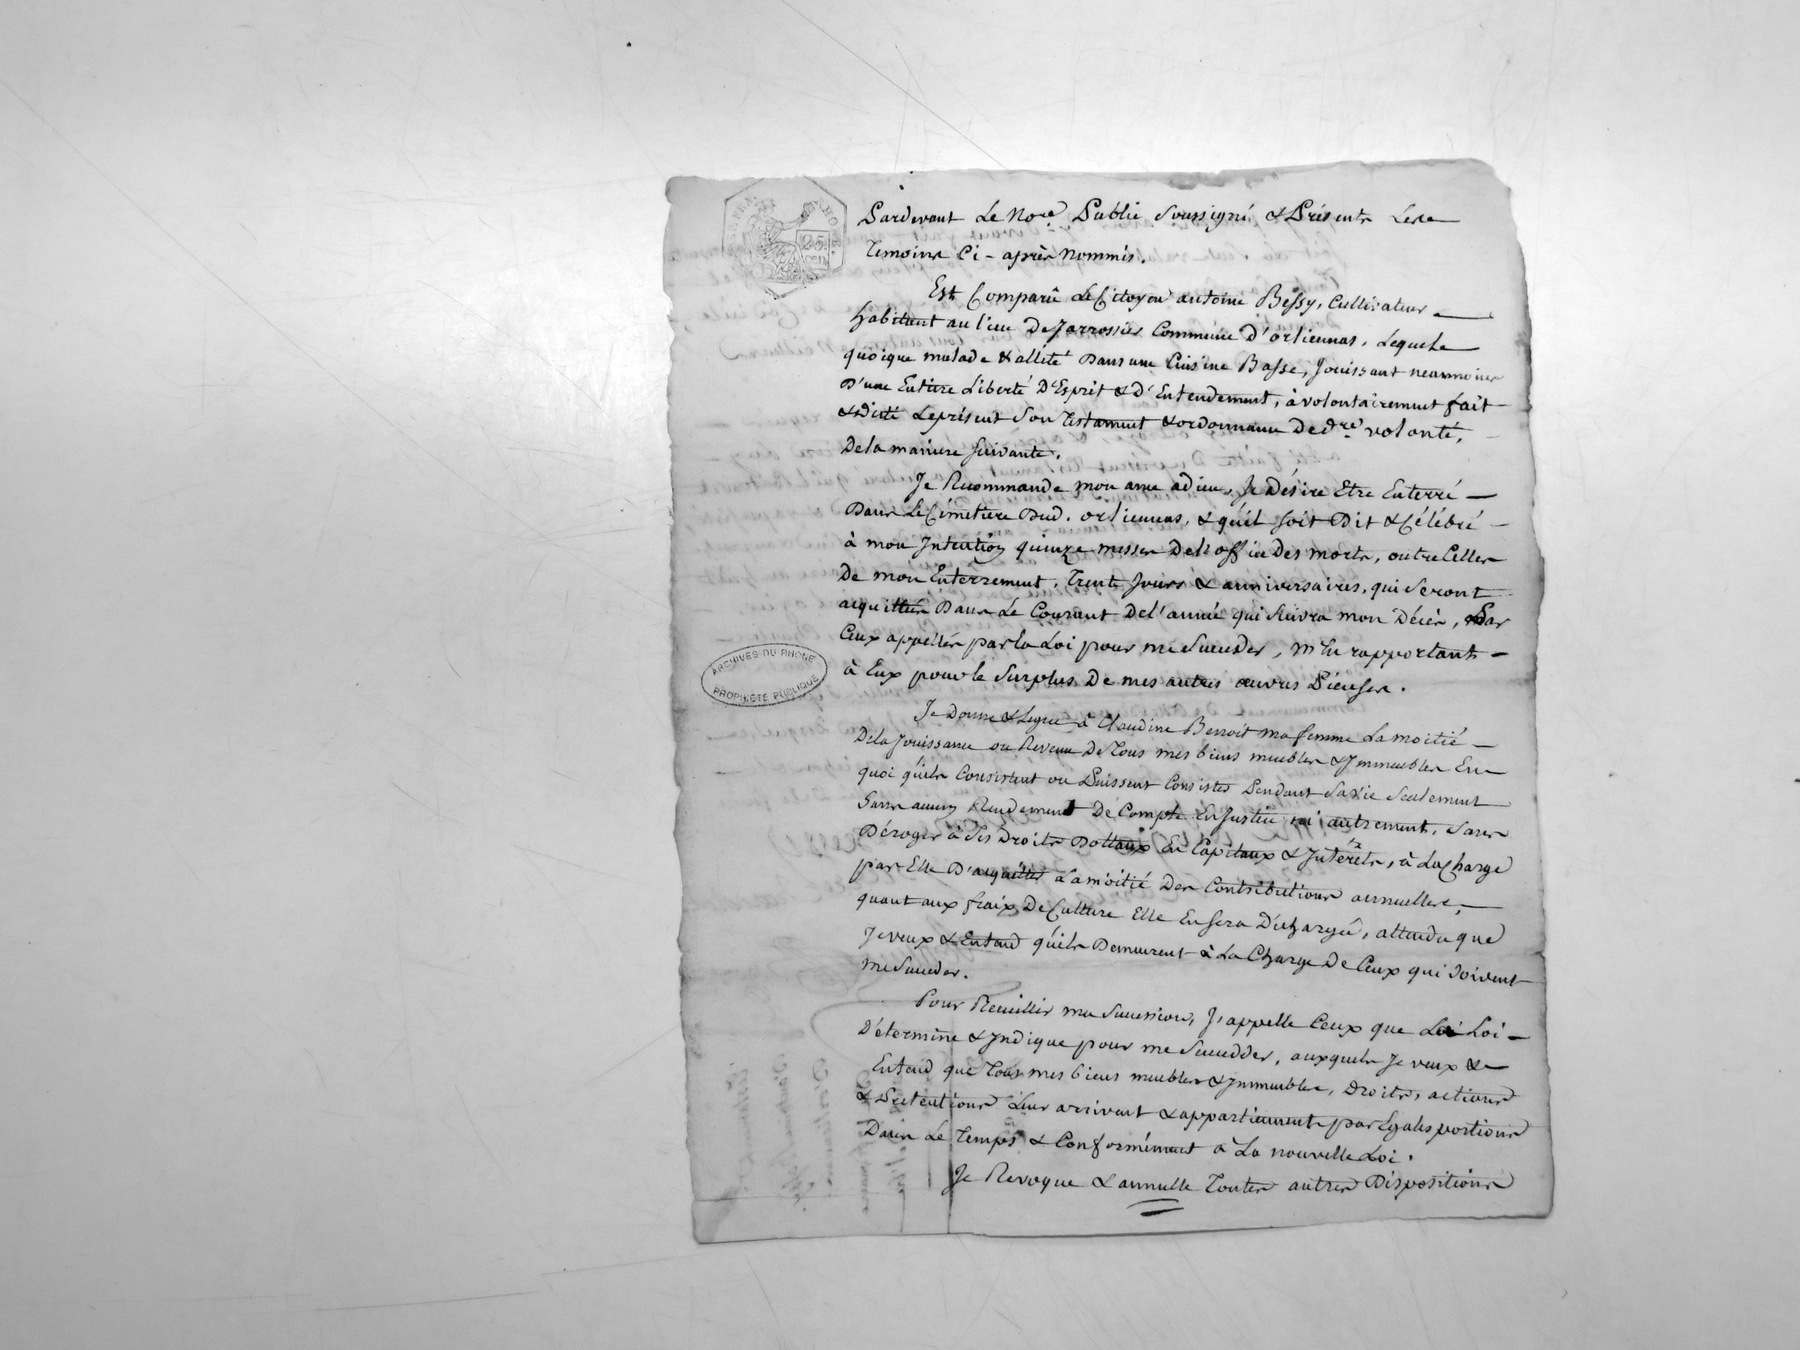 25 cen
ARCHIVES DU RHONE
PROPRIÉTÉ PUBLIQUE
Pardevant Le No.re Public Soussigné & Présents Les
Temoins Ci-après Nommés.
Est Comparû Le Citoyen antoine Bessy, Cultivateur
habitant au lieu De Jarrossier Commune D'orliennas, Lequel
quoique malade & allité Dans une Cuisine Basse, Jouissant neanmoins
D'une Entiere Liberté D'Esprit & D'Entendement, à volontairement fait
& Dicté Le présent Son Testament & ordonnance De dre. volonté,
De la maniere Suivante.
Je Recommande mon ame a dieu, Je Désire Etre Enterré
Dans Le Cimetiere Dud. orliennas, & qu'il soit Dit & Célébré
à mon Intention quinze messes De l'office Des morts, outre Celles
De mon Enterrement, Trente Jours & anniversaires, qui Seront
acquittés Dans Le Courant De l'année qui Suivra mon Décès, Par
Ceux appellés par la Loi pour me Succeder, m'En rapportant
à Eux pour le Surplus De mes autres œuvres Pieuses.
Je Donne & Legue à Claudine Benoit ma femme La moitié
De la Jouissance ou Revenu De Tous mes biens meubles & Immeubles En
quoi qu'ils Consistent ou Puissent Consister Pendant Sa Vie Seulement
Sans aucun Rendement De Compte En Justice ni autrement, Sans
Déroger à Ses Droits Dottaux En Capitaux & Intérêts, à La Charge
par Elle D'acquitter La moitié Des Contributions annuelles,
quant aux fraix De Culture Elle En sera Déchargée, attendu que
Je veux & Entend qu'ils Demeurent à La Charge De Ceux qui Doivent
me Succeder.
Pour Recueillir ma Succession, J'appelle Ceux que La Loi
Détermine & Indique pour me Succedder, auxquels Je veux &
Entend que Tous mes biens meubles & Immeubles, Droits, actions
& Prétentions Leur arrivent & appartiennent par Egales portions
Dans Le Temps & Conformément à La nouvelle Loi.
Je Revoque & annulle Toutes autres Dispositions